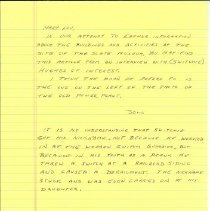 MARY LOU,
IN OUR ATTEMPT TO GATHER INFORMATION
ABOUT THE BUILDINGS AND ACTIVITIES AT THE
SITE OF THE SLATE MUSEUM, DO MAY FIND
THIS ARTICLE FROM AN INTERVIEW WITH (SWITCHIE)
HUGHES OF INTEREST.
I THINK THE BARN HE REFERS TO IS
THE ONE ON THE LEFT OF THE PHOTO OF
THE OLD
DOUG
IT IS MY UNDERSTANDING THAT SWITCHIE
GOT HIS NICKNAME, NOT BECAUSE HE WORKED
IN AT THE
BECAUSE IN HIS YOUTH AS A PRANK HE
THREW A SWITCH AT A RAILROAD SIDING
AND CAUSED A DERAILMENT. THE NICKNAME
STUCK AND WAS EVEN CARRIED ON BY HIS
DAUGHTER.